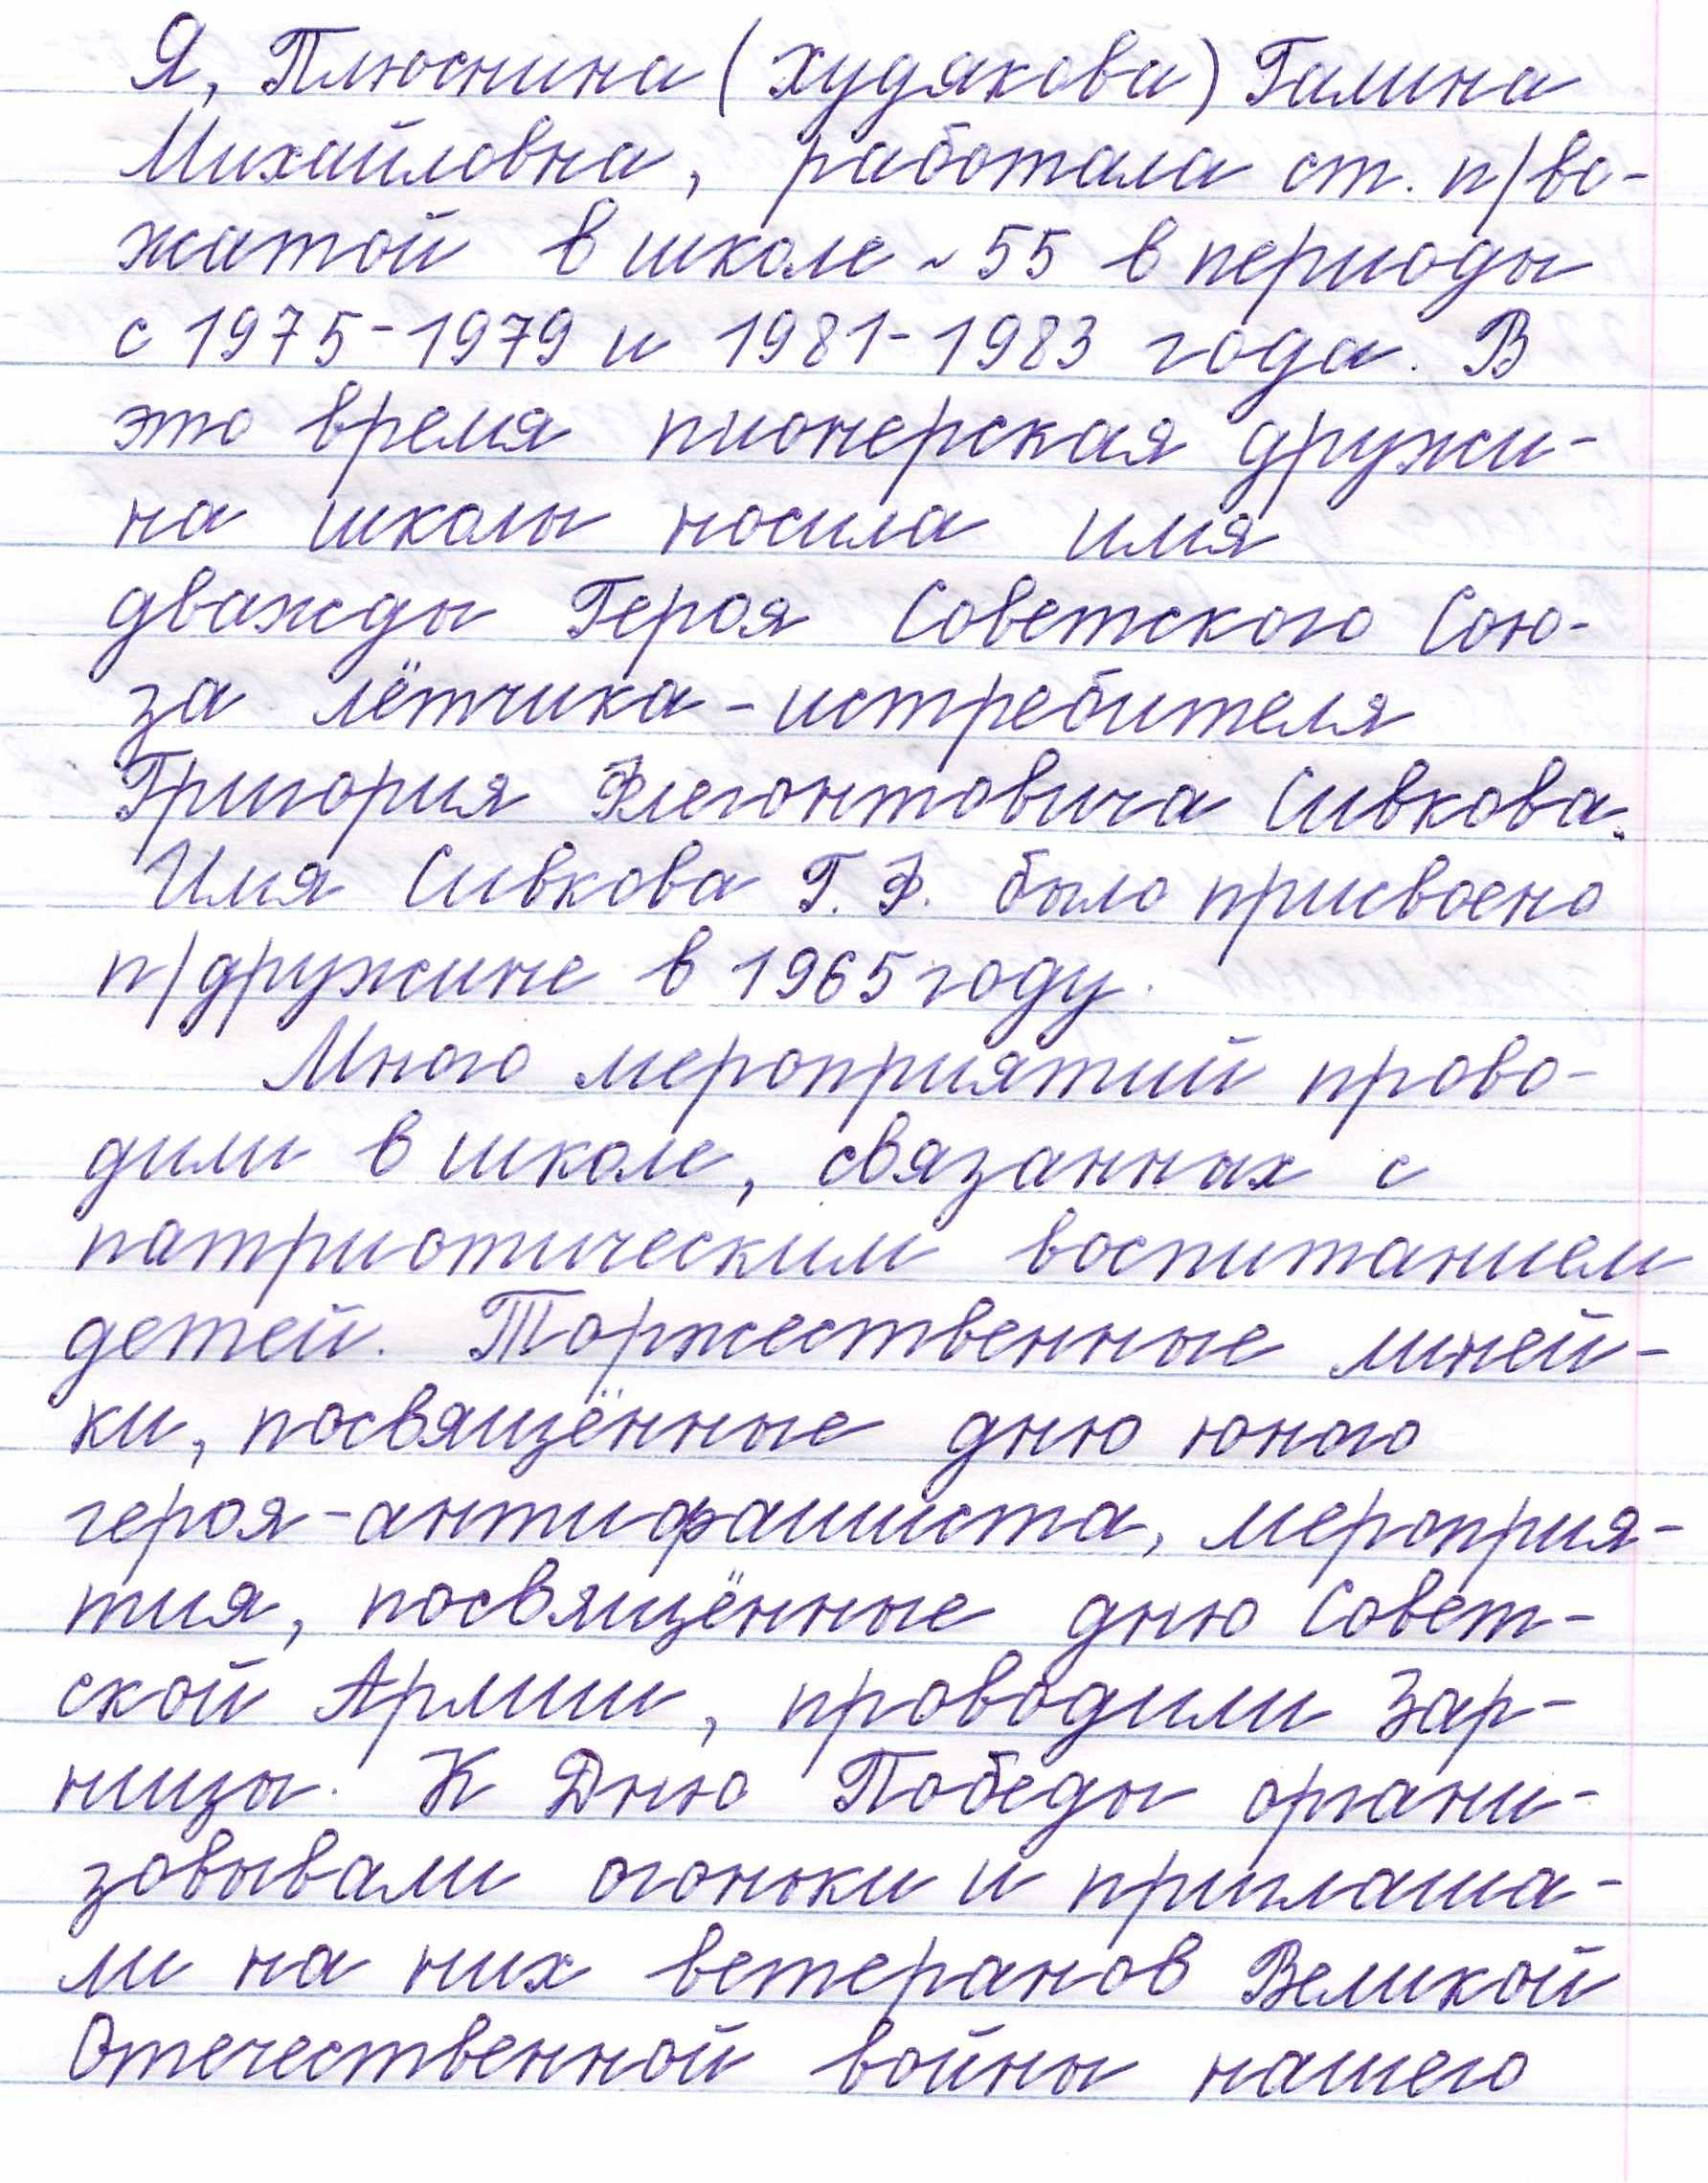 Я, Плюснина (Худякова) Галина
Михайловна, работала ст. п/во-
жатой в школе ~ 55 в периоды
с 1975-1979 и 1981-1983 года. В
это время пионерская дружи-
на школы носила имя
дважды Героя Советского Сою-
за лётчика-истребителя
Григория Флегонтовича Сивкова.
Имя Сивкова Г. Ф. было присвоено
п/дружине в 1965 году.
Много мероприятий прово-
дили в школе, связанных с
патриотическим воспитанием
детей. Торжественные линей-
ки, посвящённые дню юного
героя-антифашиста, мероприя-
тия, посвящённые дню Совет-
ской Армии, проводили Зар-
ницы. К Дню Победы органи-
зовывали огоньки и приглаша-
ли на них ветеранов Великой
Отечественной войны нашего